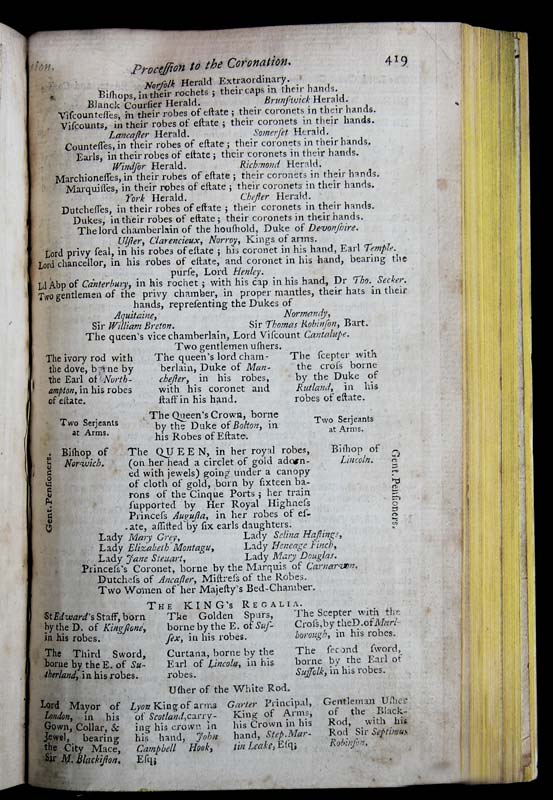 Procession to the Coronation. 419
Norfolk Herald Extraordinary.
Bishops, in their rochets ; their caps in their hands.
Blanck Coursier Herald. Brunswick Herald.
Viscountesses, in their robes of estate ; their coronets in their hands.
Viscounts, in their robes of estate ; their coronets in their hands.
Lancaster Herald. Somerset Herald.
Countesses, in their robes of estate ; their coronets in their hands.
Earls, in their robes of estate ; their coronets in their hands.
Windsor Herald. Richmond Herald.
Marchionesses, in their robes of estate ; their coronets in their hands.
Marquisses, in their robes of estate ; their coronets in their hands.
York Herald. Chester Herald.
Dutchesses, in their robes of estate ; their coronets in their hands.
Dukes, in their robes of estate ; their coronets in their hands.
The lord chamberlain of the houshold, Duke of Devonshire.
Ulster, Clarencieux, Norroy, Kings of arms.
Lord privy seal, in his robes of estate ; his coronet in his hand, Earl Temple.
Lord chancellor, in his robes of estate, and coronet in his hand, bearing the
purse, Lord Henley.
Ld Abp of Canterbury, in his rochet ; with his cap in his hand, Dr Tho. Secker.
Two gentlemen of the privy chamber, in proper mantles, their hats in their
hands, representing the Dukes of
Aquitaine, Normandy,
Sir William Breton. Sir Thomas Robinson, Bart.
The queen's vice chamberlain, Lord Viscount Cantalupe.
Two gentlemen ushers.
The ivory rod with
the dove, borne by
the Earl of North-
ampton, in his robes
of estate.
The queen's lord cham-
berlain, Duke of Man-
chester, in his robes,
with his coronet and
staff in his hand.
The scepter with
the cross borne
by the Duke of
Rutland, in his
robes of estate.
Two Serjeants
at Arms.
The Queen's Crown, borne
by the Duke of Bolton, in
his Robes of Estate.
Two Serjeants
at Arms.
Gent. Pensioners.
Bishop of
Norwich.
The QUEEN, in her royal robes,
(on her head a circlet of gold adorn-
ed with jewels) going under a canopy
of cloth of gold, born by sixteen ba-
rons of the Cinque Ports ; her train
supported by Her Royal Highness
Princess Augusta, in her robes of es-
tate, assisted by six earls daughters.
Bishop of
Lincoln.
Gent. Pensioners.
Lady Mary Grey, Lady Selina Hastings,
Lady Elizabeth Montagu, Lady Heneage Finch,
Lady Jane Steuart, Lady Mary Douglas.
Princess's Coronet, borne by the Marquis of Carnarvon.
Dutchess of Ancaster, Mistress of the Robes.
Two Women of her Majesty's Bed-Chamber.
THE KING's REGALIA.
St Edward's Staff, born
by the D. of Kingstone,
in his robes.
The Golden Spurs,
borne by the E. of Sus-
sex, in his robes.
The Scepter with the
Cross, by the D. of Marl-
borough, in his robes.
The Third Sword,
borne by the E. of Su-
therland, in his robes.
Curtana, borne by the
Earl of Lincoln, in his
robes.
The second sword,
borne by the Earl of
Suffolk, in his robes.
Usher of the White Rod.
Lord Mayor of
London, in his
Gown, Collar, &
Jewel, bearing
the City Mace,
Sir M. Blackiston.
Lyon King of arms
of Scotland, carry-
ing his crown in
his hand, John
Campbell Hook,
Esq;
Garter Principal,
King of Arms,
his Crown in his
hand, Step. Mar-
tin Leake, Esq;
Gentleman Usher
of the Black-
Rod, with his
Rod Sir Septimus
Robinson.